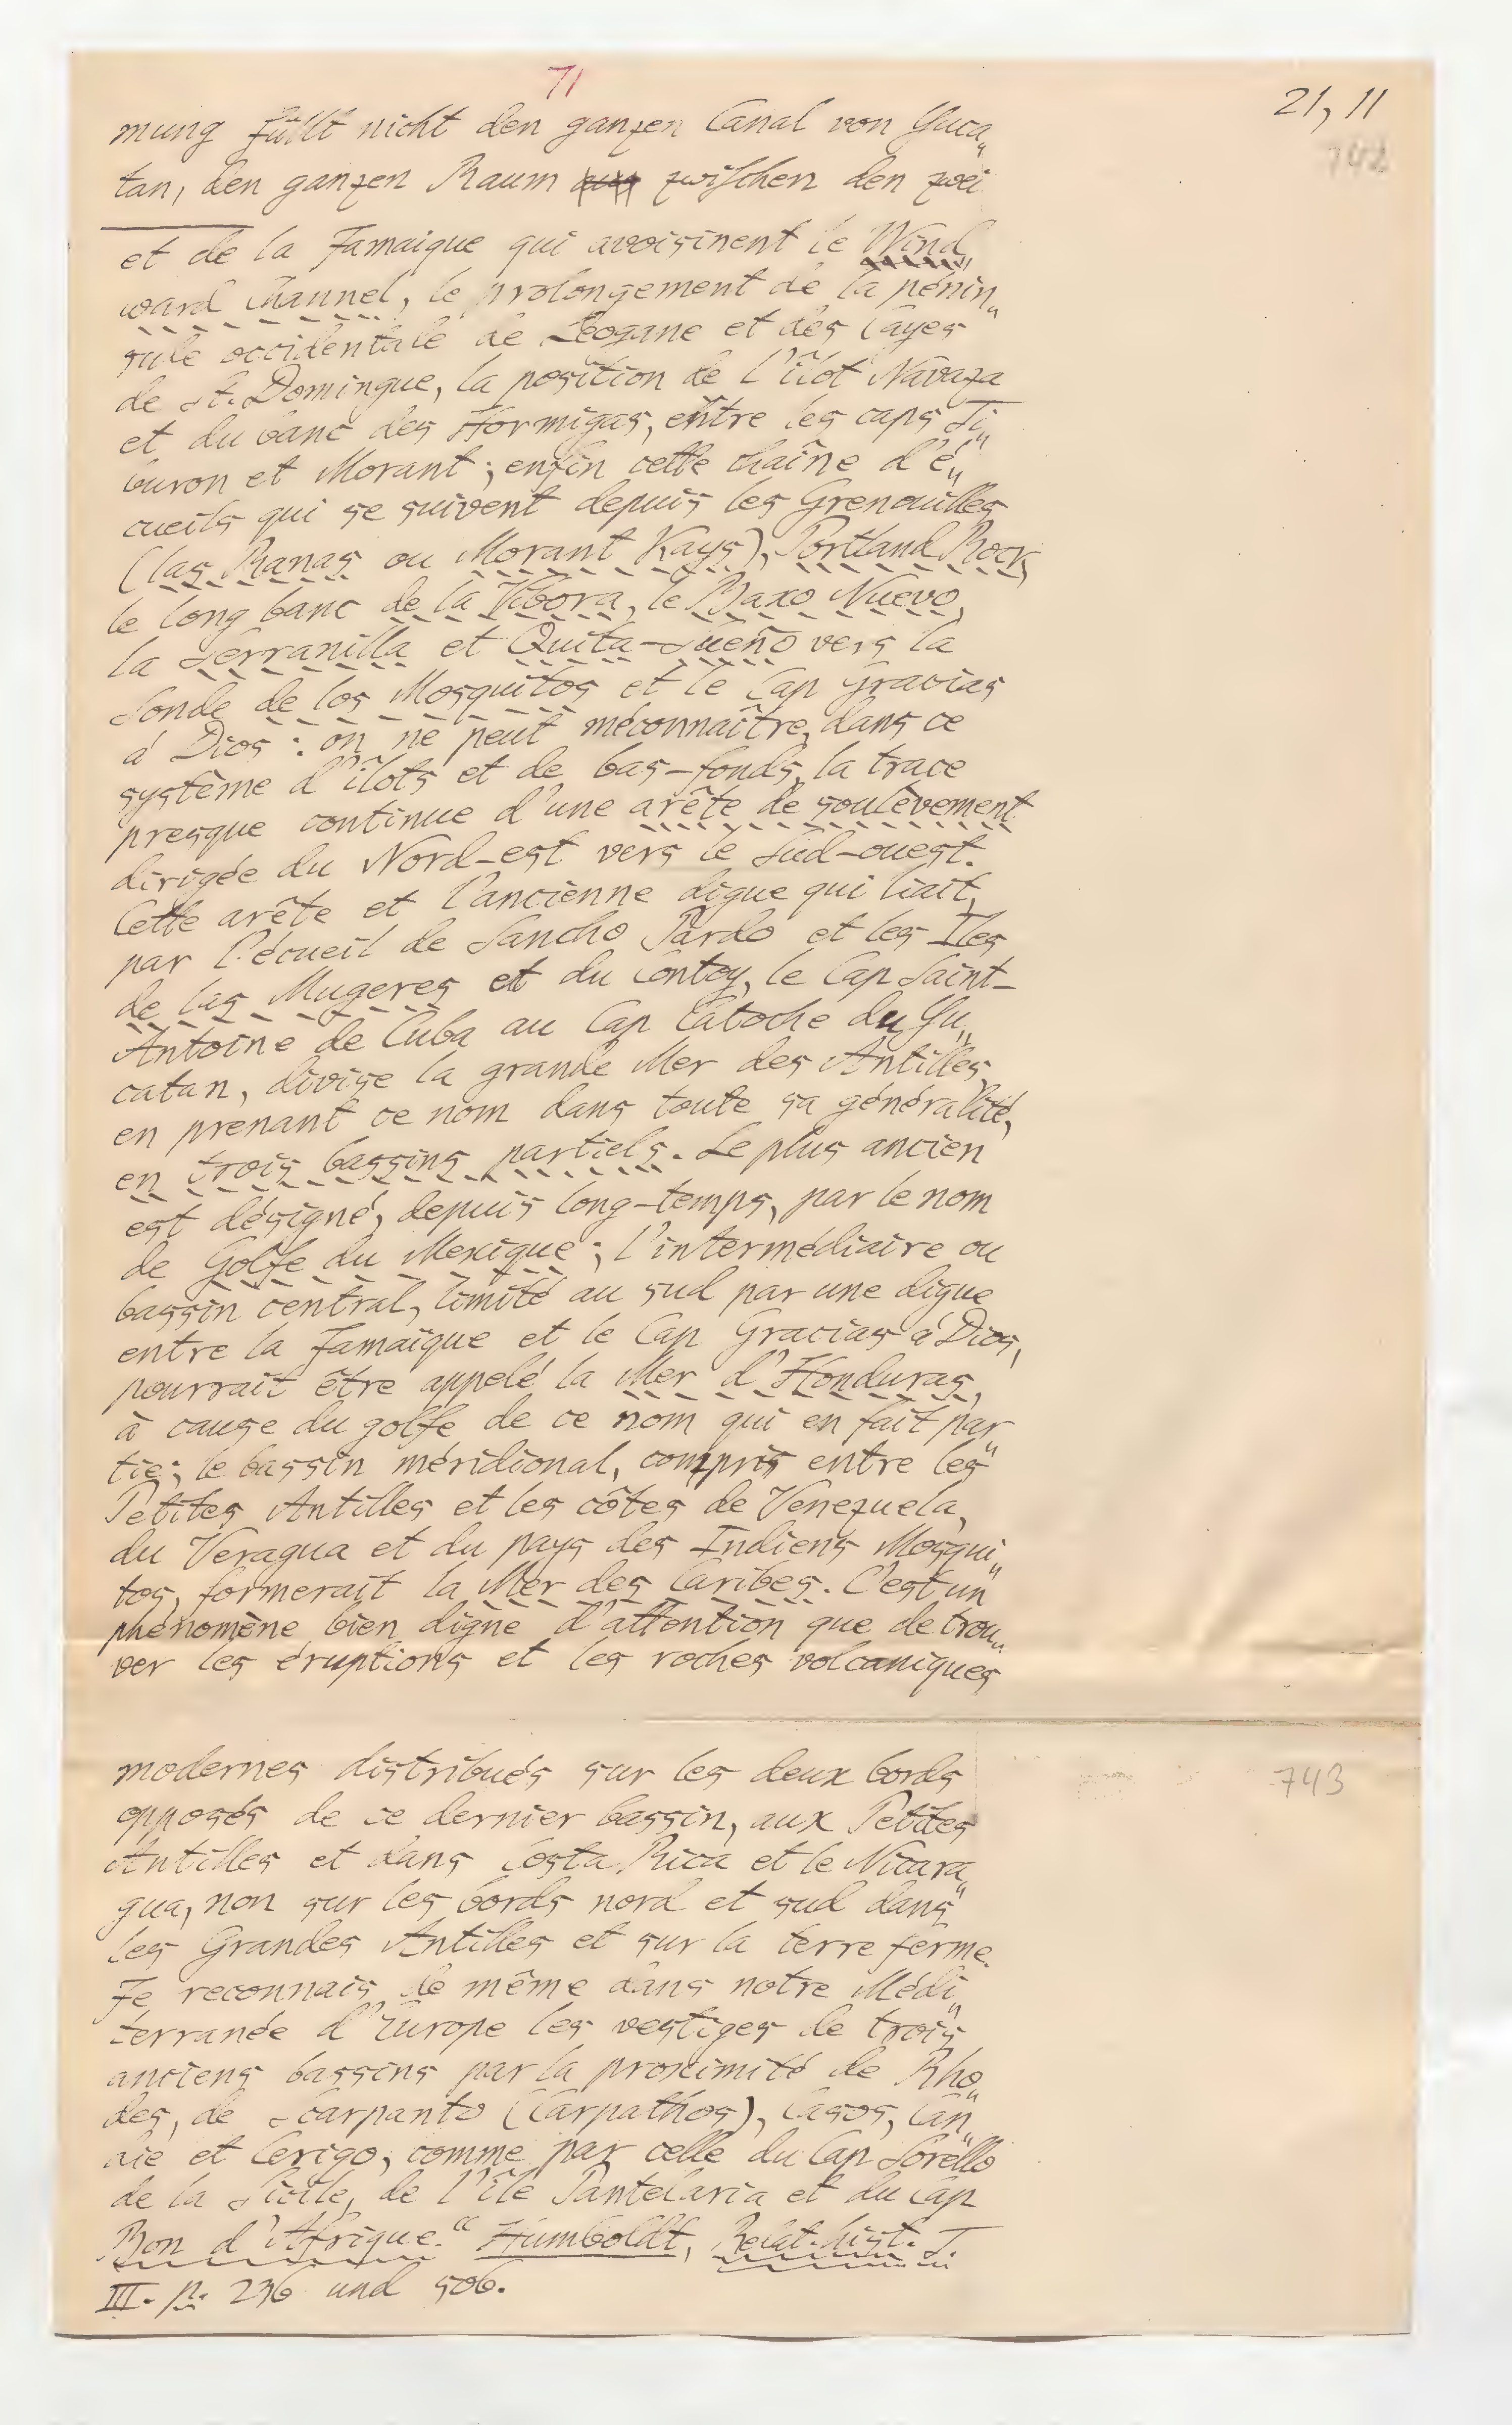 71
21, 11
742
mung füllt nicht den ganzen Canal von Yuca„
tan, den ganzen Raum aus zwischen den zwei
et de la Jamaique qui avoisinent le Wind„
ward Channel, le prolongement de la pénin„
sule occidentale de Leogane et des Cayes
de St. Domingue, la position de l'îlot Navaza
et du banc des Hormigas, entre les caps Ti„
buron et Morant; enfin cette chaîne d'é„
cueils qui se suivent depuis les Grenouilles
(las Ranas ou Morant Kays), Portland Rock,
le long banc de la Vibora, le Baxo Nuevo,
la Serranilla et Quita-Sueño vers la
Sonde de los Mosquitos et le Cap Gracias
á Dios: on ne peut méconnaître, dans ce
système d'îlots et de bas-fonds, la trace
presque continue d'une arête de soulèvement
dirigée du Nord-est vers le Sud-ouest.
Cette arête et l'ancienne digue qui liait,
par l'écueil de Sancho Pardo et les Iles
de las Mugeres et du Contoy, le Cap Saint-
Antoine de Cuba au Cap Catoche du Yu„
catan, divise la grande Mer des Antilles,
en prenant ce nom dans toute sa généralité,
en trois bassins partiels. Le plus ancien
est désigné, depuis long-temps, par le nom
de Golfe du Mexique; l'intermédiaire ou
bassin central, limité au sud par une digue
entre la Jamaïque et le Cap Gracias á Dios,
pourrait être appelé la Mer d'Honduras,
à cause du golfe de ce nom qui en fait par„
tie; le bassin méridional, compris entre les
Petites Antilles et les côtes de Venezuela,
du Veragua et du pays des Indiens Mosqui„
tos, formerait la Mer des Caribes. C'est un
phénomène bien digne d'attention que de trou„
ver les éruptions et les roches volcaniques
743
modernes distribués sur les deux bords
opposés de ce dernier bassin, aux Petites
Antilles et dans Costa Rica et le Nicara„
gua, non sur les bords nord et sud dans
les Grandes Antilles et sur la terre ferme.
Je reconnais de même dans notre Médi„
terranée d'Europe les vestiges de trois
anciens bassins par la proximité de Rho„
des, de Scarpanto (Carpathos), Casos, Can„
die et Cerigo, comme par celle du Cap Sorello
de la Sicile, de l'île Pantelaria et du Cap
Bon d'Afrique.“ Humboldt, Relat. hist. T.
III. p. 236 und 506.